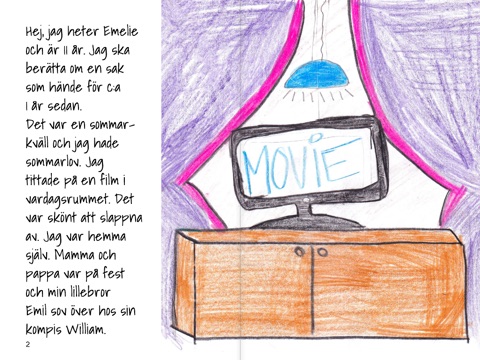 Hej, jag heter Emelie
och är 11 år. Jag ska
berätta om en sak
som hände för c:a
1 år sedan.
Det var en sommar-
kväll och jag hade
sommarlov. Jag
tittade på en film i
vardagsrummet. Det
var skönt att slappna
av. Jag var hemma
själv. Mamma och
pappa var på fest
och min lillebror
Emil sov över hos sin
kompis William.
2
MOVIE